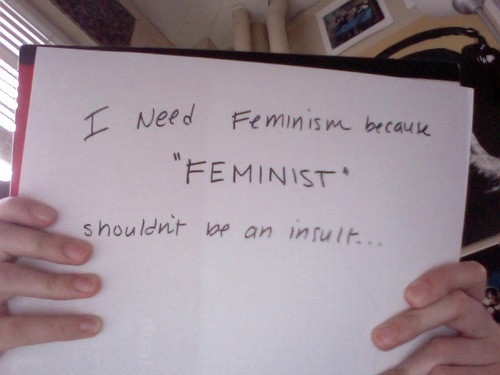 I Need Feminism because
"FEMINIST"
shouldn't be an insult...